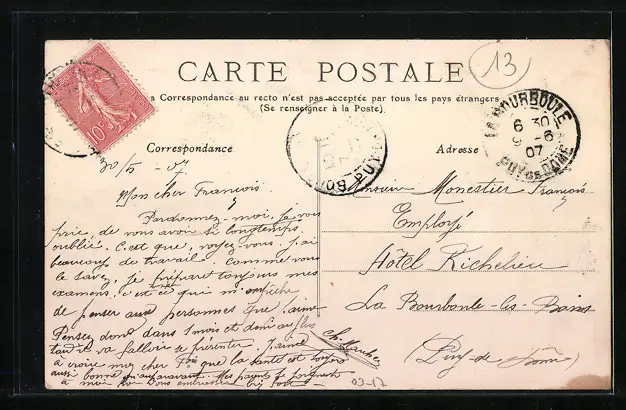 13
CARTE POSTALE
a Correspondance au recto n'est pas acceptée par tous les pays étrangers
(Se renseigner à la Poste).
LA BOURBOULE
6 30
9 -6
07
PUY DE DOME
10c
Correspondance
Adresse
30/5 - 07
Mon cher François.
Pardonnez-moi, je vous
prie, de vous avoir si longtemps
oublié. C'est que, voyez-vous, j'ai
beaucoup de travail. Comme vous
le savez, je prépare toujours mes
examens, c'est ce qui m'empêche
de penser aux personnes que j'aime
Pensez donc dans 1 mois et demi au plus
tard va falloir se présenter. J'aime
à croire mon cher que la santé est toujours
aussi bonne qu'auparavant. Mes parents se joignent
à moi pour vous embrasser fort
Monsieur Monestier François
Employé
Hôtel Richelieu
La Bourboule-les-Bains
(Puy-de-Dôme)
03-17